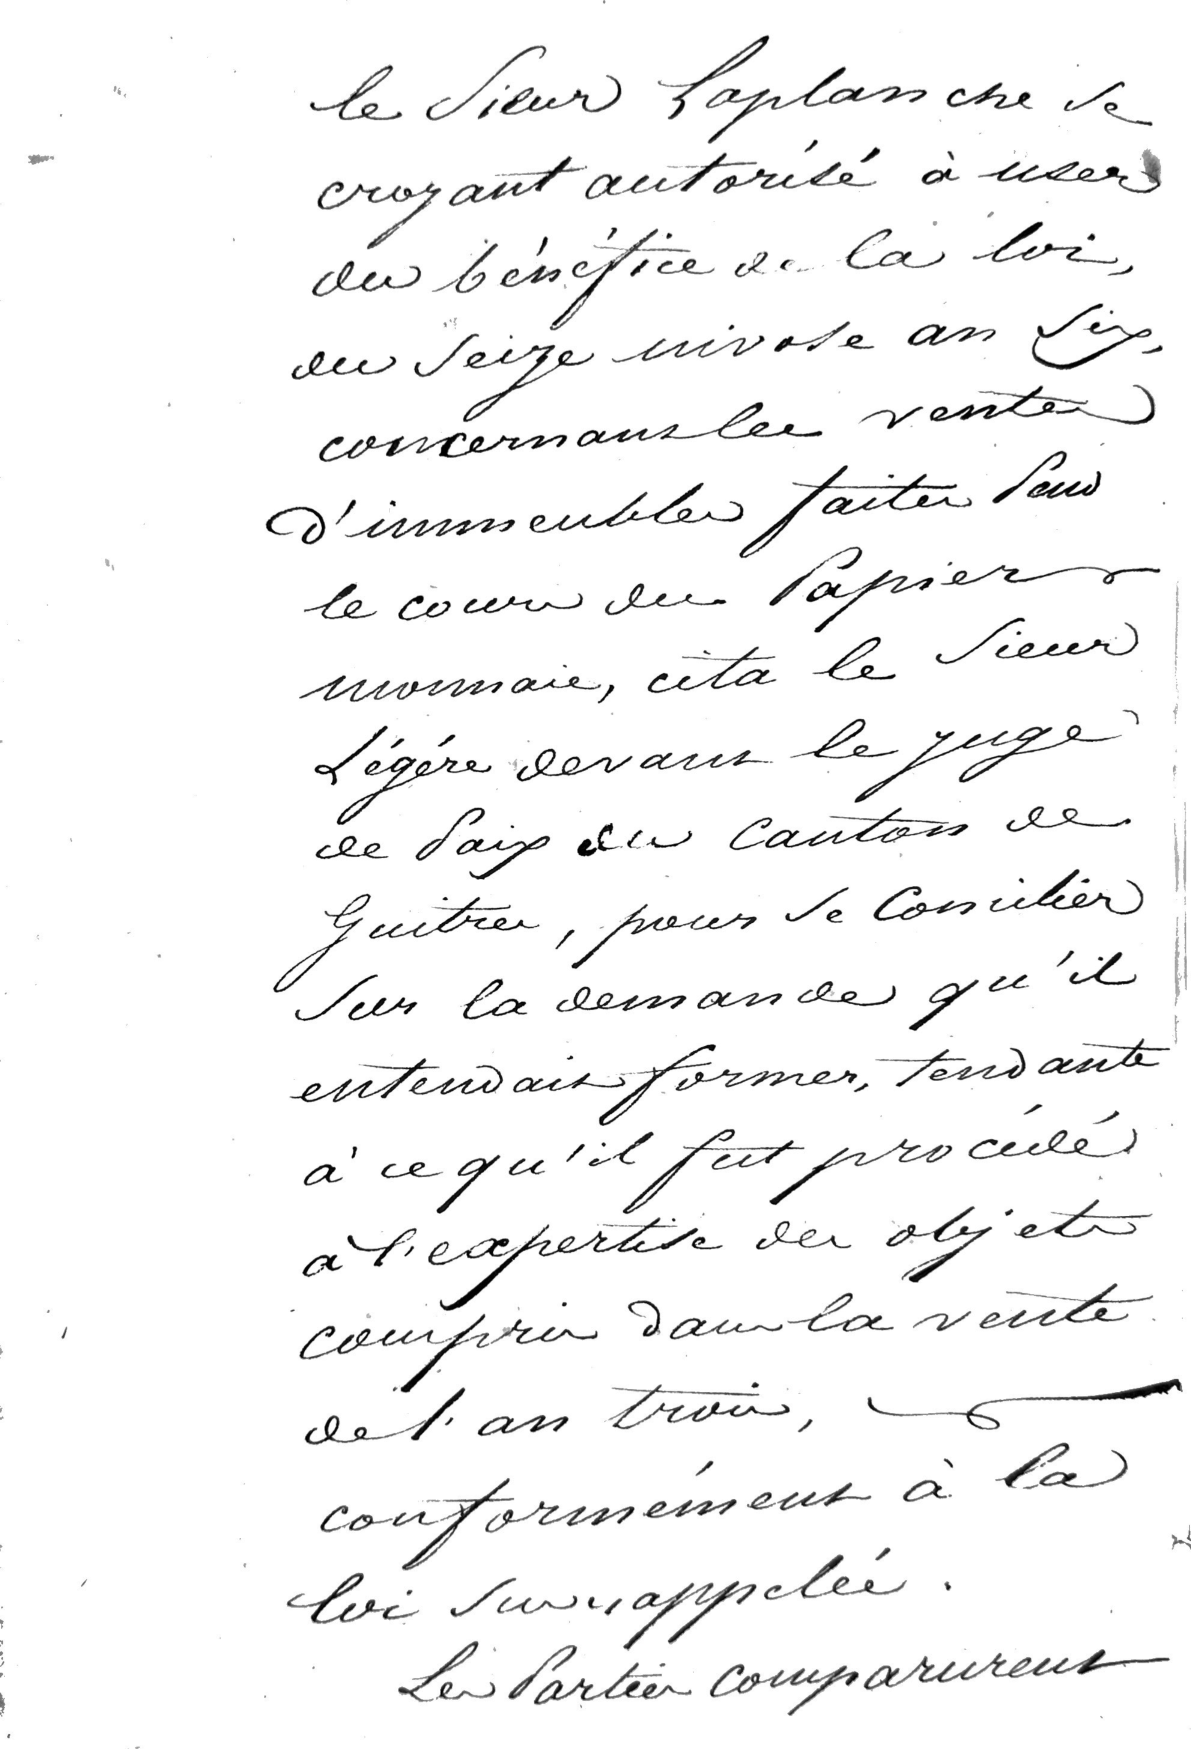 le Sieur Laplanche se
croyant autorisé à user
du bénéfice de la loi,
du Seize nivose an Six,
concernant les ventes
d'immeubles faites Pend
le cours du Papier
monnaie, cita le Sieur
Légére devant le juge
de Paix du Canton de
Guitres, pour se Concilier
Sur la demande qu'il
entendait former, tendante
à ce qu'il fut procédé
à l'expertise des objets
compris dans la vente
de l'an trois,
conformément à la
loi Sus appelée.
Les Parties comparurent